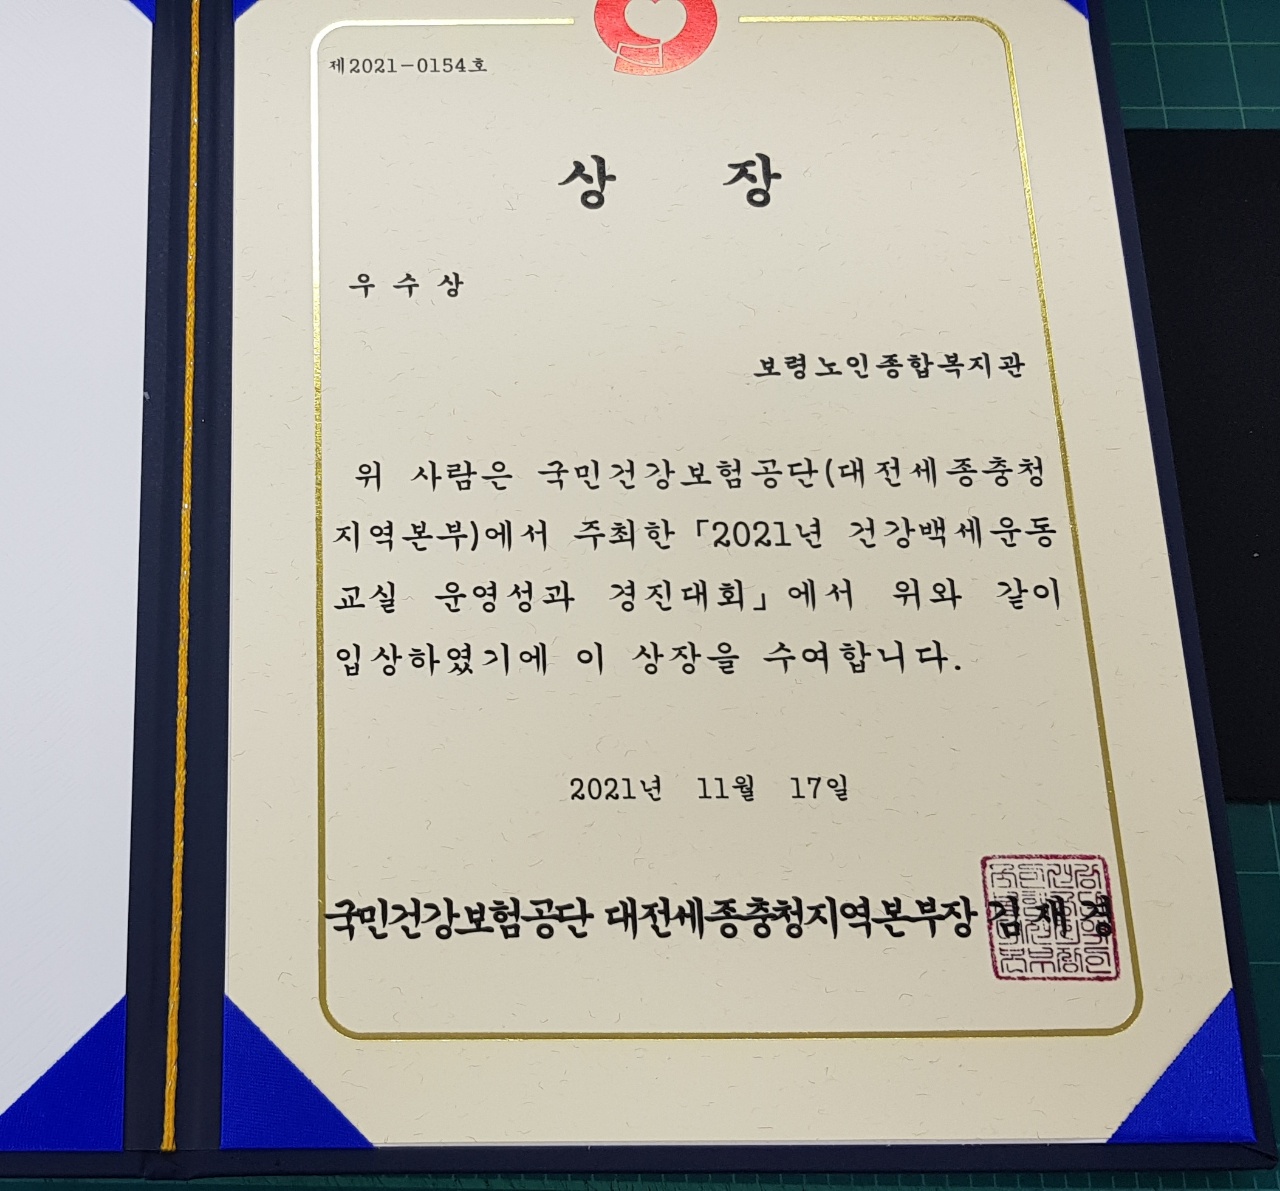 제2021-0154호
상 장
우 수 상
보령노인종합복지관
위 사람은 국민건강보험공단(대전세종충청
지역본부)에서 주최한 「2021년 건강백세운동
교실 운영성과 경진대회」에서 위와 같이
입상하였기에 이 상장을 수여합니다.
2021년 11월 17일
국민건강보험공단 대전세종충청지역본부장 김 재 경